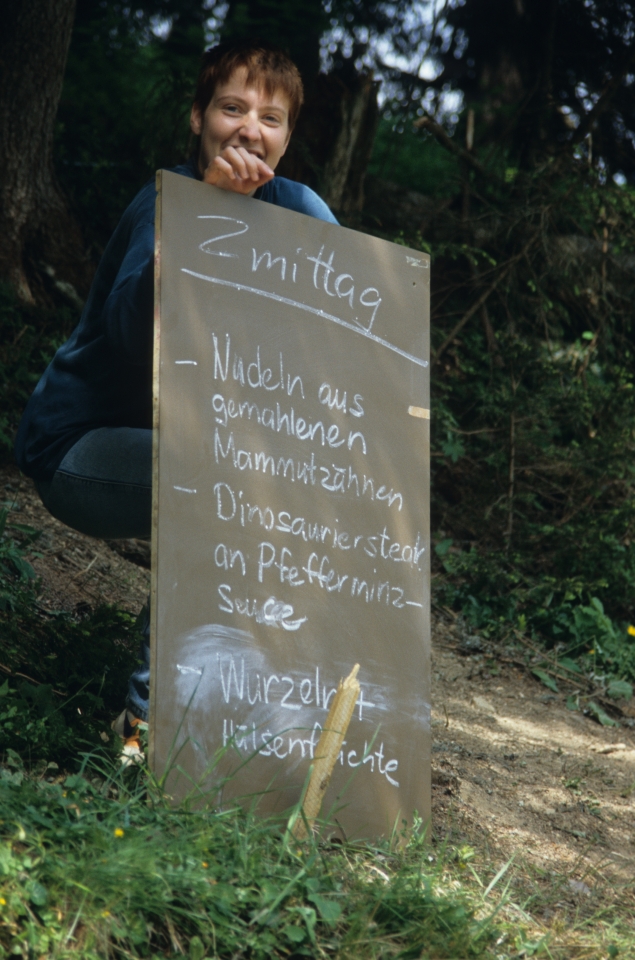 Zmittag
- Nudeln aus
gemahlenen
Mammutzähnen
- Dinosauriersteak
an Pfefferminz-
- Wurzeln +
Hülsenfrüchte